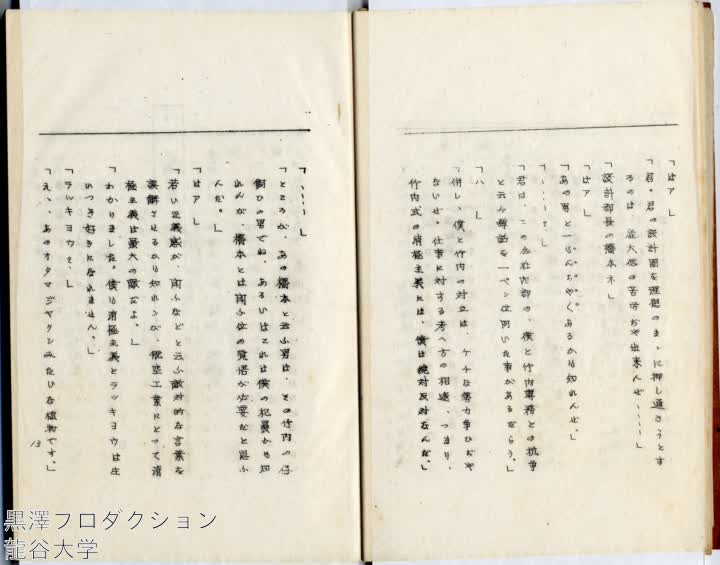 「はア」
「君、君の設計図を理想のまゝに押し通さうとす
るのは、並大低の苦労ぢや出来んぜ……」
「設計部長の橋本ネ」
「はア」
「あの男と一もんちやくあるかも知れんぜ。」
「……？」
「君は、この会社内部の、僕と竹内専務との抗争
と云ふ噂話を一ペン位聞いた事があるだらう。」
「ハ」
「併し、僕と竹内の対立は、ケチな勢力争ひぢや
ないぜ。仕事に対する考へ方の相違、つまり、
竹内式の消極主義には、僕は絶対反対なんだ。」
「……」
「ところが、あの橋本と云ふ男は、その竹内の子
飼ひの男でね、あるいはこれは僕の も知
れんが、橋本とは闘ふ位の覚悟が必要だと思ふ
んだ。」
「はア」
「若い正義感が、闘ふなどと云ふ敵対的な言葉を
誤解させるかも知れンが、航空工業にとつて消
極主義は最大の敵だよ。」
「わかりました。僕も消極主義とラッキヨウは生
れつき好きになれません。」
「ラッキヨウ？」
「えゝ、あのオタマジヤクシみたいな植物です。」
13
黒澤プロダクション
龍谷大学